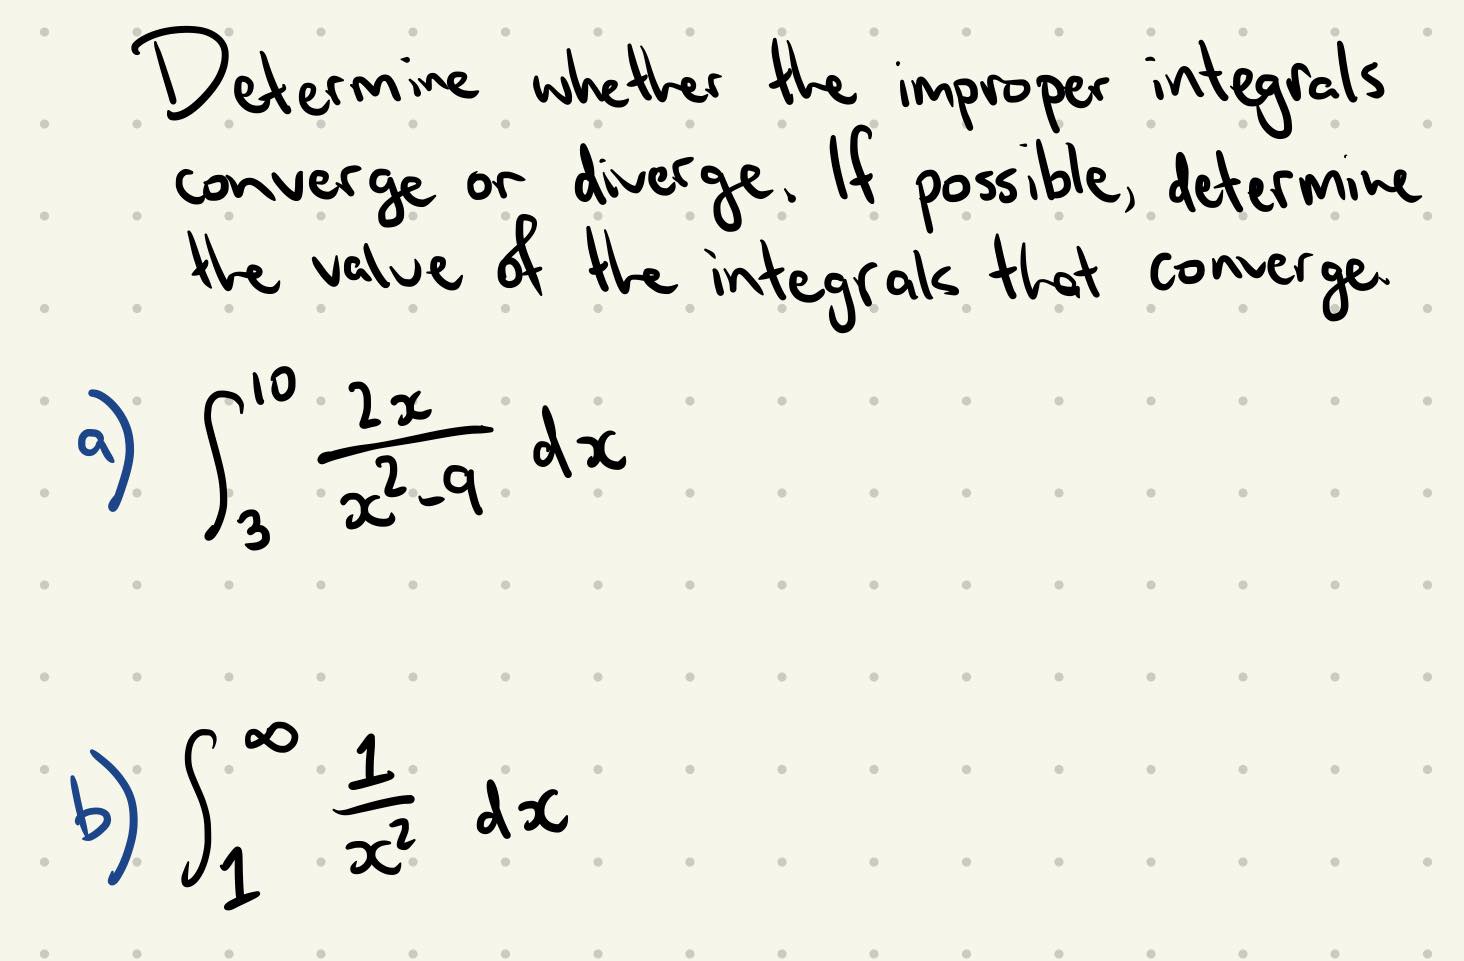 Determine whether the improper integrals
converge or diverge. If possible, determine
the value of the integrals that converge.
a) ∫₃¹⁰ 2x/(x²-9) dx
b) ∫₁^∞ 1/x² dx